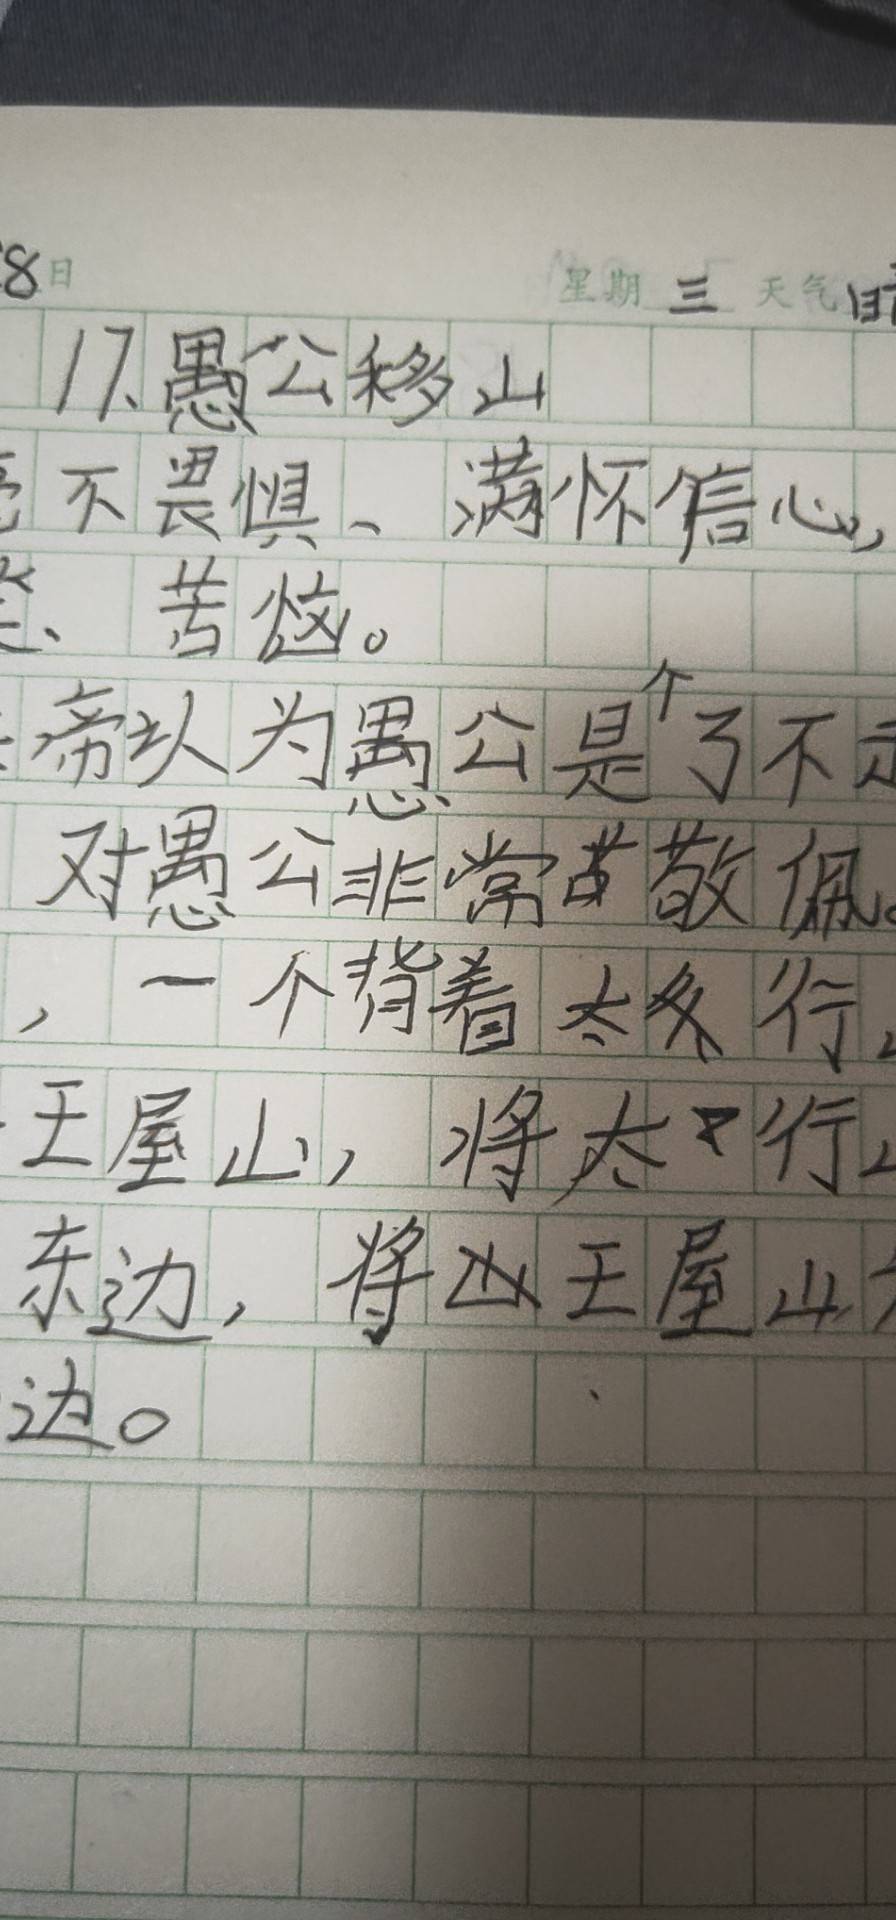 8日 星期 三 天气 晴
17.愚公移山
不畏惧、满怀信心,
、苦恼。
帝认为愚公是个了不
对愚公非常敬佩。
,一个背着太行
王屋山,将太行
东边,将王屋山
边。